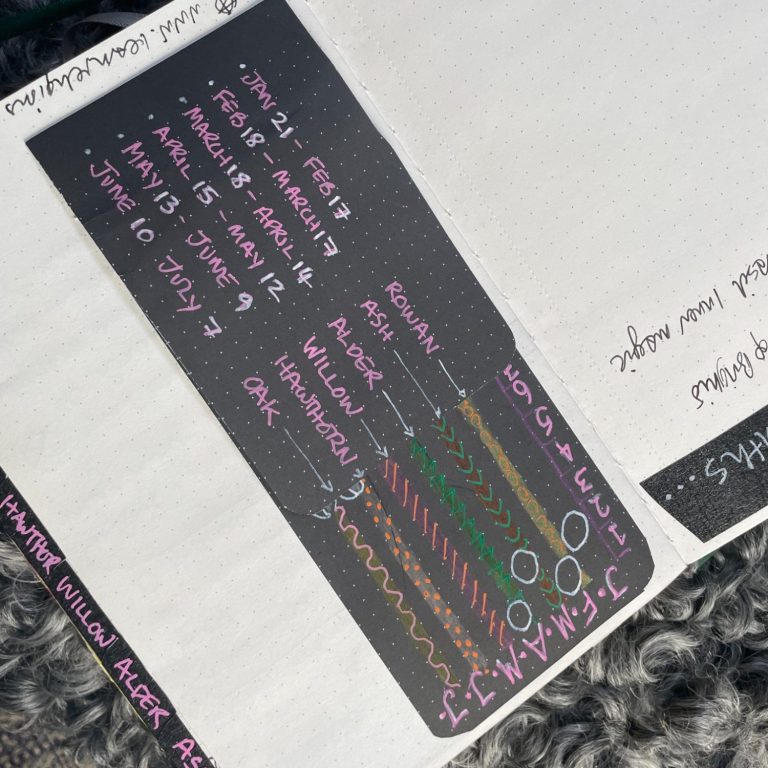 www.learnreligions
• JAN 21 - FEB 17
• FEB 18 - MARCH 17
• MARCH 18 - APRIL 14
• APRIL 15 - MAY 12
• MAY 13 - JUNE 9
• JUNE 10 JULY 7
ROWAN
ASH
ALDER
WILLOW
HAWTHORN
OAK
6 5 4 3 2 1
J.F.M.A.M.J.J.
inner magic
THS...
HAWTHOR WILLOW ALDER AS